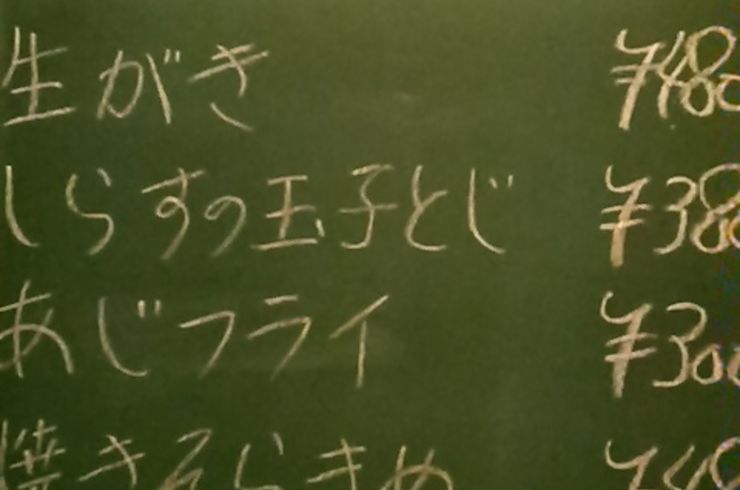 生がき ¥480
しらすの玉子とじ ¥380
あじフライ ¥300
焼きそらまめ